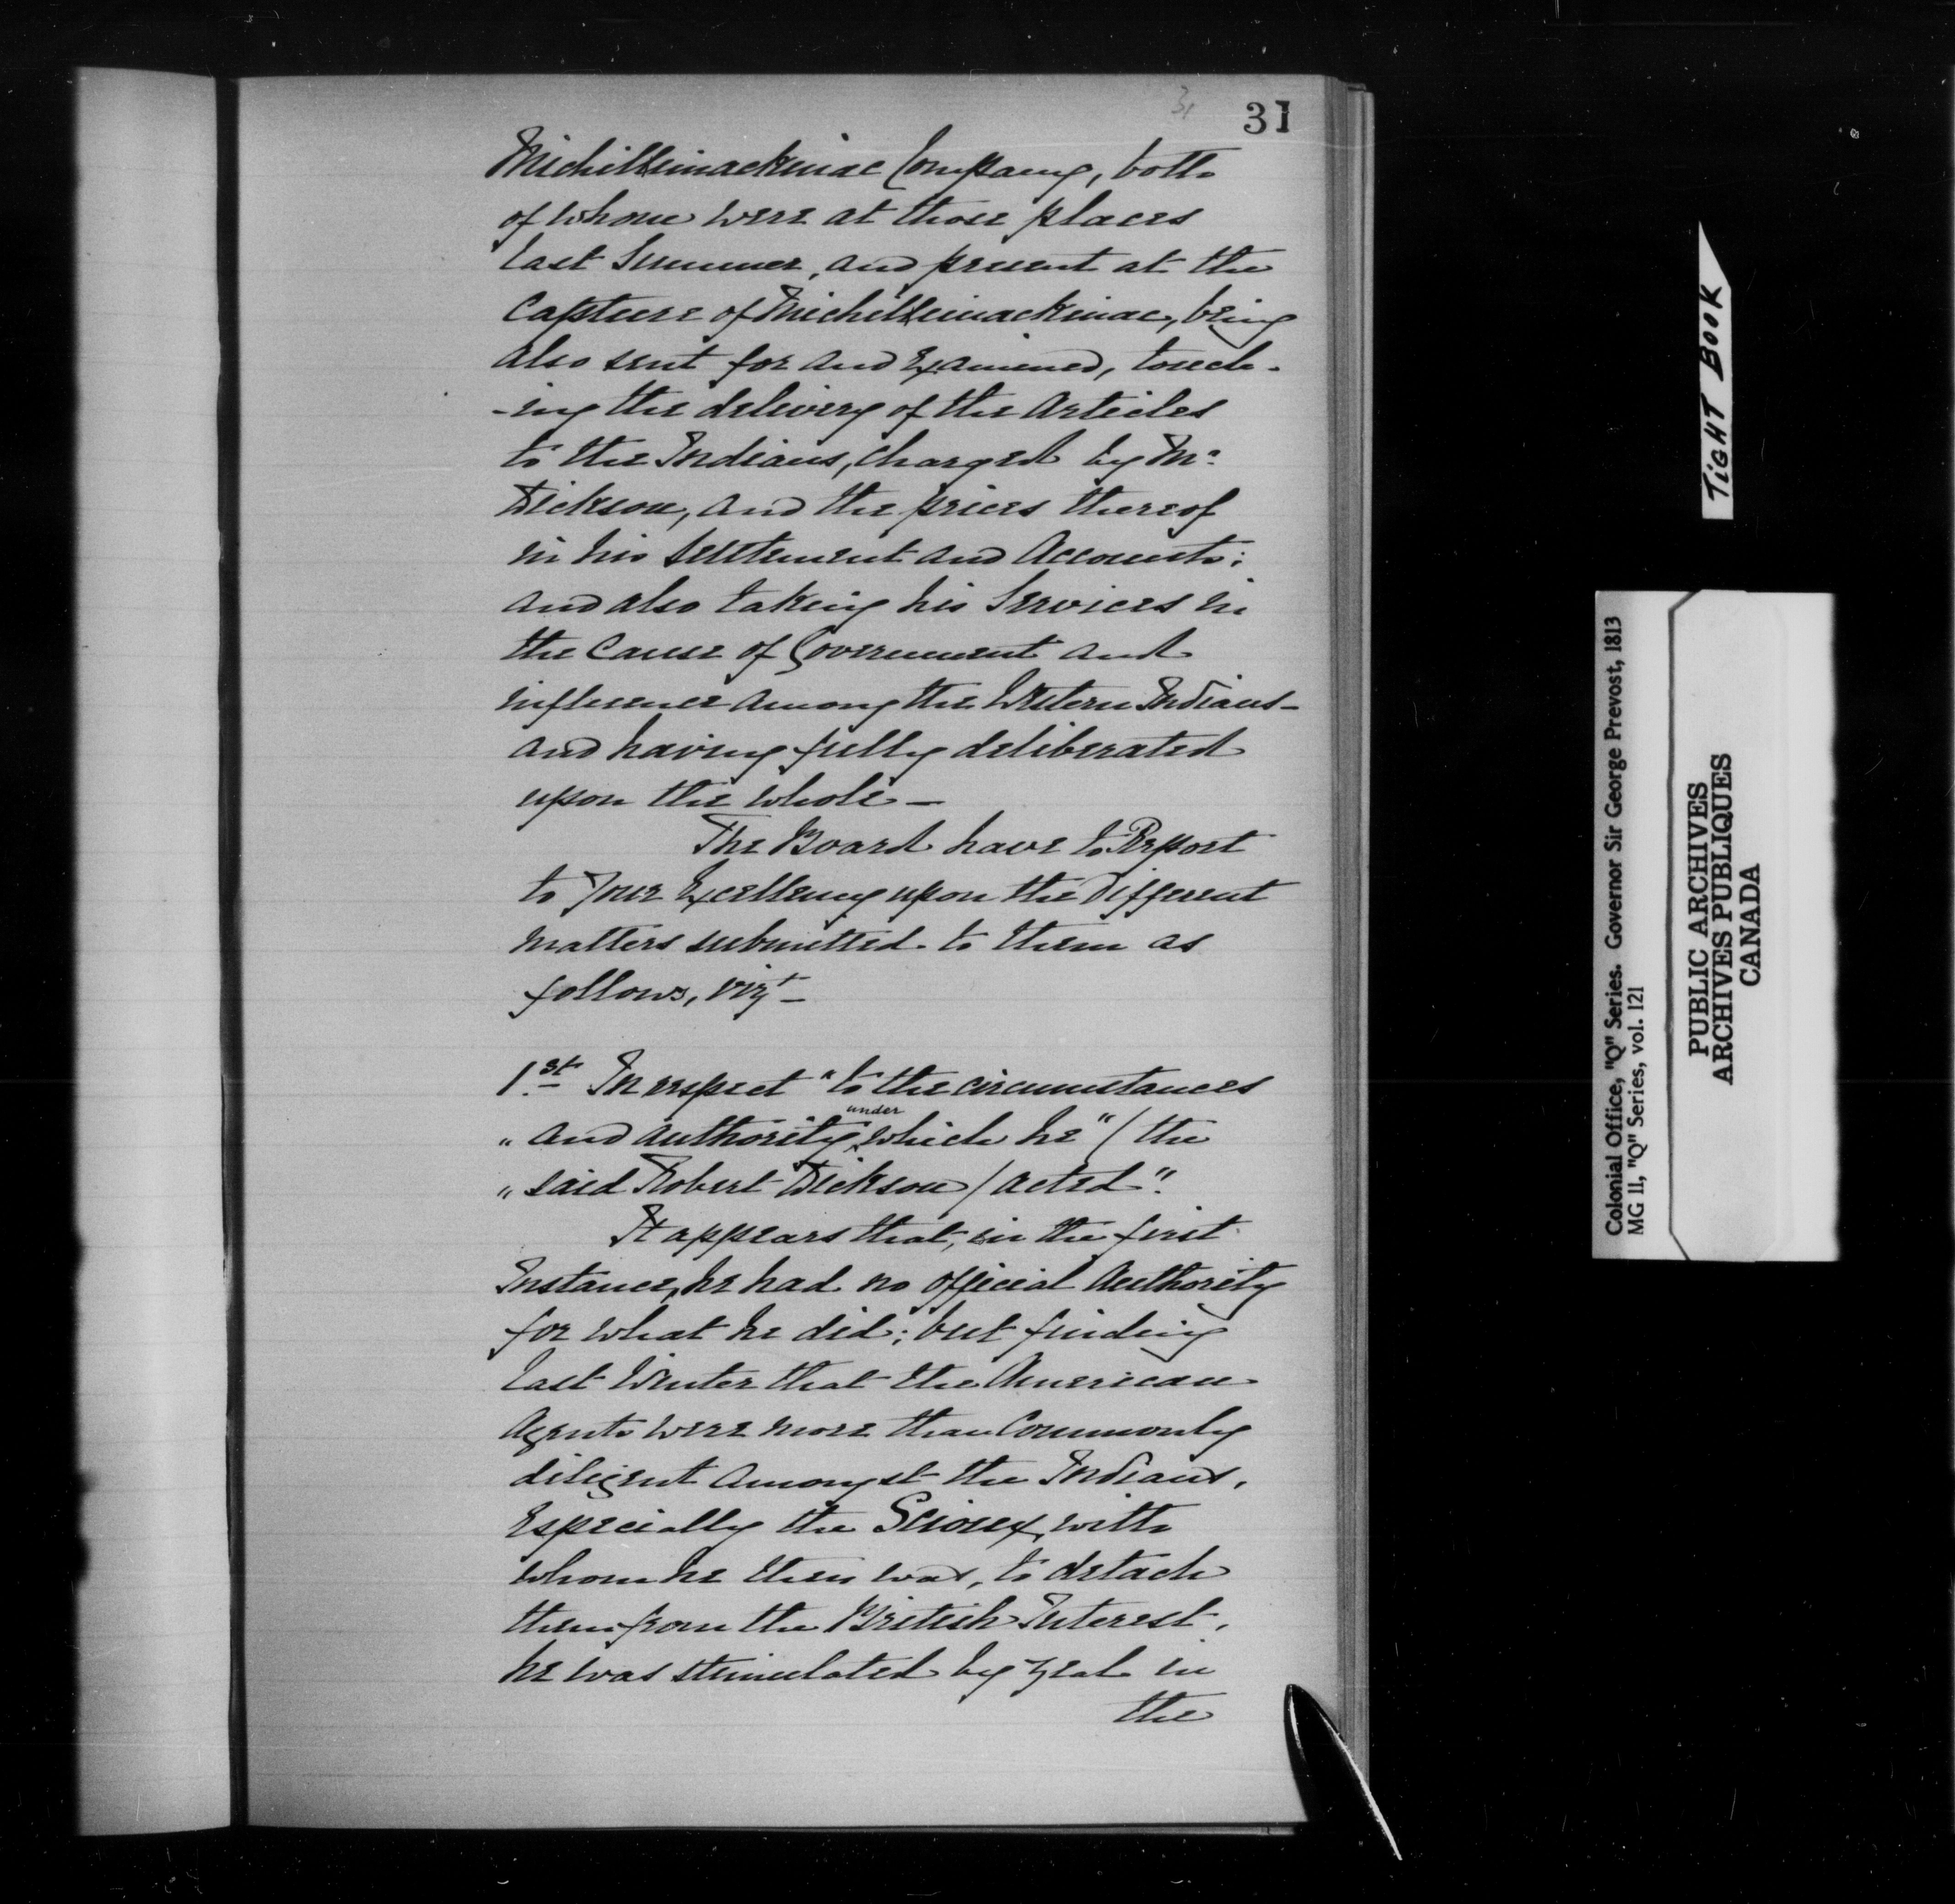 31
31
Michillimackinac Company, both
of whom were at those places
last Summer, and present at the
Capture of Michillimackinac, being
also sent for and Examined, touch-
-ing the delivery of the Articles
to the Indians, charged by Mr.
Dickson, and the prices thereof
in his Settlement and Accounts;
and also taking his Services in
the Cause of Government and
influence among the Western Indians—
and having fully deliberated
upon the whole—
The Board have to Report
to Your Excellency upon the Different
matters submitted to them as
follows, Vizt—
1st In respect "to the circumstances
" and authority under which he" (the
" said Robert Dickson / acted".
It appears that, in the first
Instance, he had no official Authority
for what he did; but finding
last Winter that the American
Agents were more than Commonly
diligent amongst the Indians,
Especially the Scioux, with
whom he then was, to detach
them from the British Interest,
he was stimulated by zeal in
the
TIGHT BOOK
Colonial Office, "Q" Series. Governor Sir George Prevost, 1813
MG 11, "Q" Series, vol. 121
PUBLIC ARCHIVES
ARCHIVES PUBLIQUES
CANADA